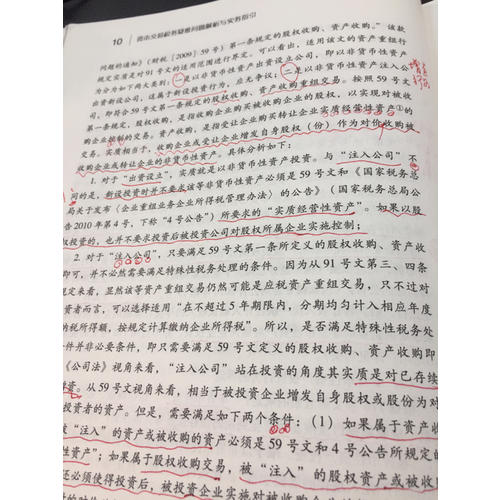 10 资本交易税务疑难问题解析与实务指引
问题的通知》(财税〔2009〕59 号)第一条规定的股权收购、资产收购。”该款
规定实质是对 91 号文的适用范围进行界定。可以看出,适用该文的资产重组行
为分为如下两大类别:一是以非货币性资产出资设立公司,即以非货币性资产
出资新设公司,这属于新设投资行为,应无争议;二是以非货币性资产注入公
司,即符合 59 号文第一条规定的股权收购、资产收购重组交易。按照 59 号文
第一条规定,股权收购,是指收购企业购买被收购企业的股权,以实现对被收
购企业控制的交易。资产收购,是指受让企业购买转让企业实质经营性资产①的
交易。实质相当于,收购企业或受让企业增发自身股权(份)作为对价收购被
收购企业或转让企业的非货币性资产。具体分析如下:
1. 对于“出资设立”,实质就是以非货币性资产投资。与“注入公司”不
同的是,新设投资时并不要求该等非货币性资产必须是 59 号文和《国家税务总
局关于发布〈企业重组业务企业所得税管理办法〉的公告》(国家税务总局公
告 2010 年第 4 号,下称“4 号公告”)所要求的“实质经营性资产”。如果以股
权投资的,也并不要求投资后被投资公司对股权所属企业实施控制;
2. 对于“注入公司”,只要满足 59 号文第一条所定义的股权收购、资产收
即可,并不必然需要满足特殊性税务处理的条件。因为从 91 号文第三、四条
规定来看,显然该等资产重组交易仍然可能是应税资产重组交易,只不过对
资者而言,可以选择适用“在不超过 5 年期限内,分期均匀计入相应年度
纳税所得额,按规定计算缴纳企业所得税”。所以,是否满足特殊性税务处
件并非必要条件,即只需要满足 59 号文定义的股权收购、资产收购即
《公司法》视角来看,“注入公司”站在投资的角度其实质是对已存续
增资。从 59 号文视角来看,相当于被投资企业增发自身股权或股份为对
投资者的资产。但是,需要满足如下两个条件:(1)如果属于资产收
被“注入”的资产或被收购的资产必须是 59 号文和 4 号公告所规定的
性资产”;如果属于股权收购交易,被“注入”的股权资产或被收
还必须使得投资后,被投资企业实施对被收购